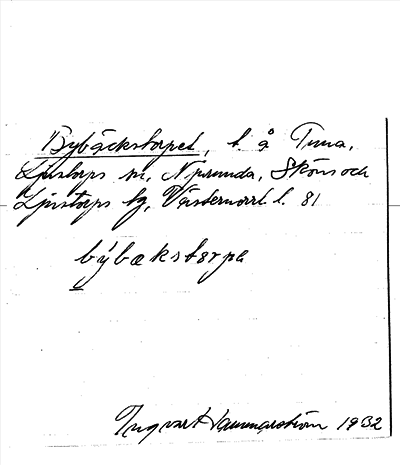 Bybäckstorpet, t. å Tuna,
Ljustorps sn, Njurunda, Sköns och
Ljustorps tg, Västernorrl. l. 81
bybækstorpa
Ingvar Hammarström 1932